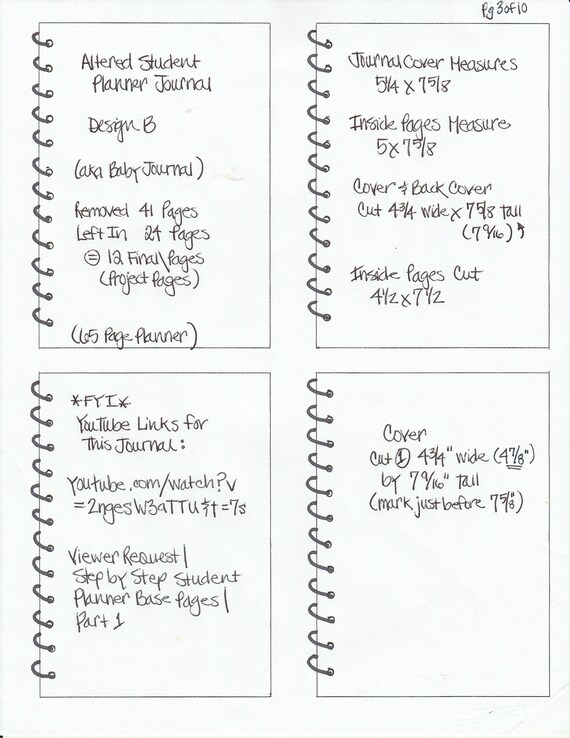 Pg 3 of 10
Altered Student
Planner Journal
Design B
(aka Baby Journal)
Removed 41 Pages
Left In 24 Pages
= 12 Final\Pages
(Project Pages)
(65 Page Planner)
Journal Cover Measures
5 1/4 x 7 5/8
Inside Pages Measure
5 x 7 5/8
Cover & Back Cover
Cut 4 3/4 wide x 7 5/8 tall
(7 9/16)
Inside Pages Cut
4 1/2 x 7 1/2
*FYI*
YouTube Links for
This Journal:
Youtube.com/watch?v
=2ngesW3aTTU&t=7s
Viewer Request|
Step by Step Student
Planner Base Pages|
Part 1
Cover
Cut 1 4 3/4" wide (4 7/8")
by 7 9/16" tall
(mark just before 7 5/8")